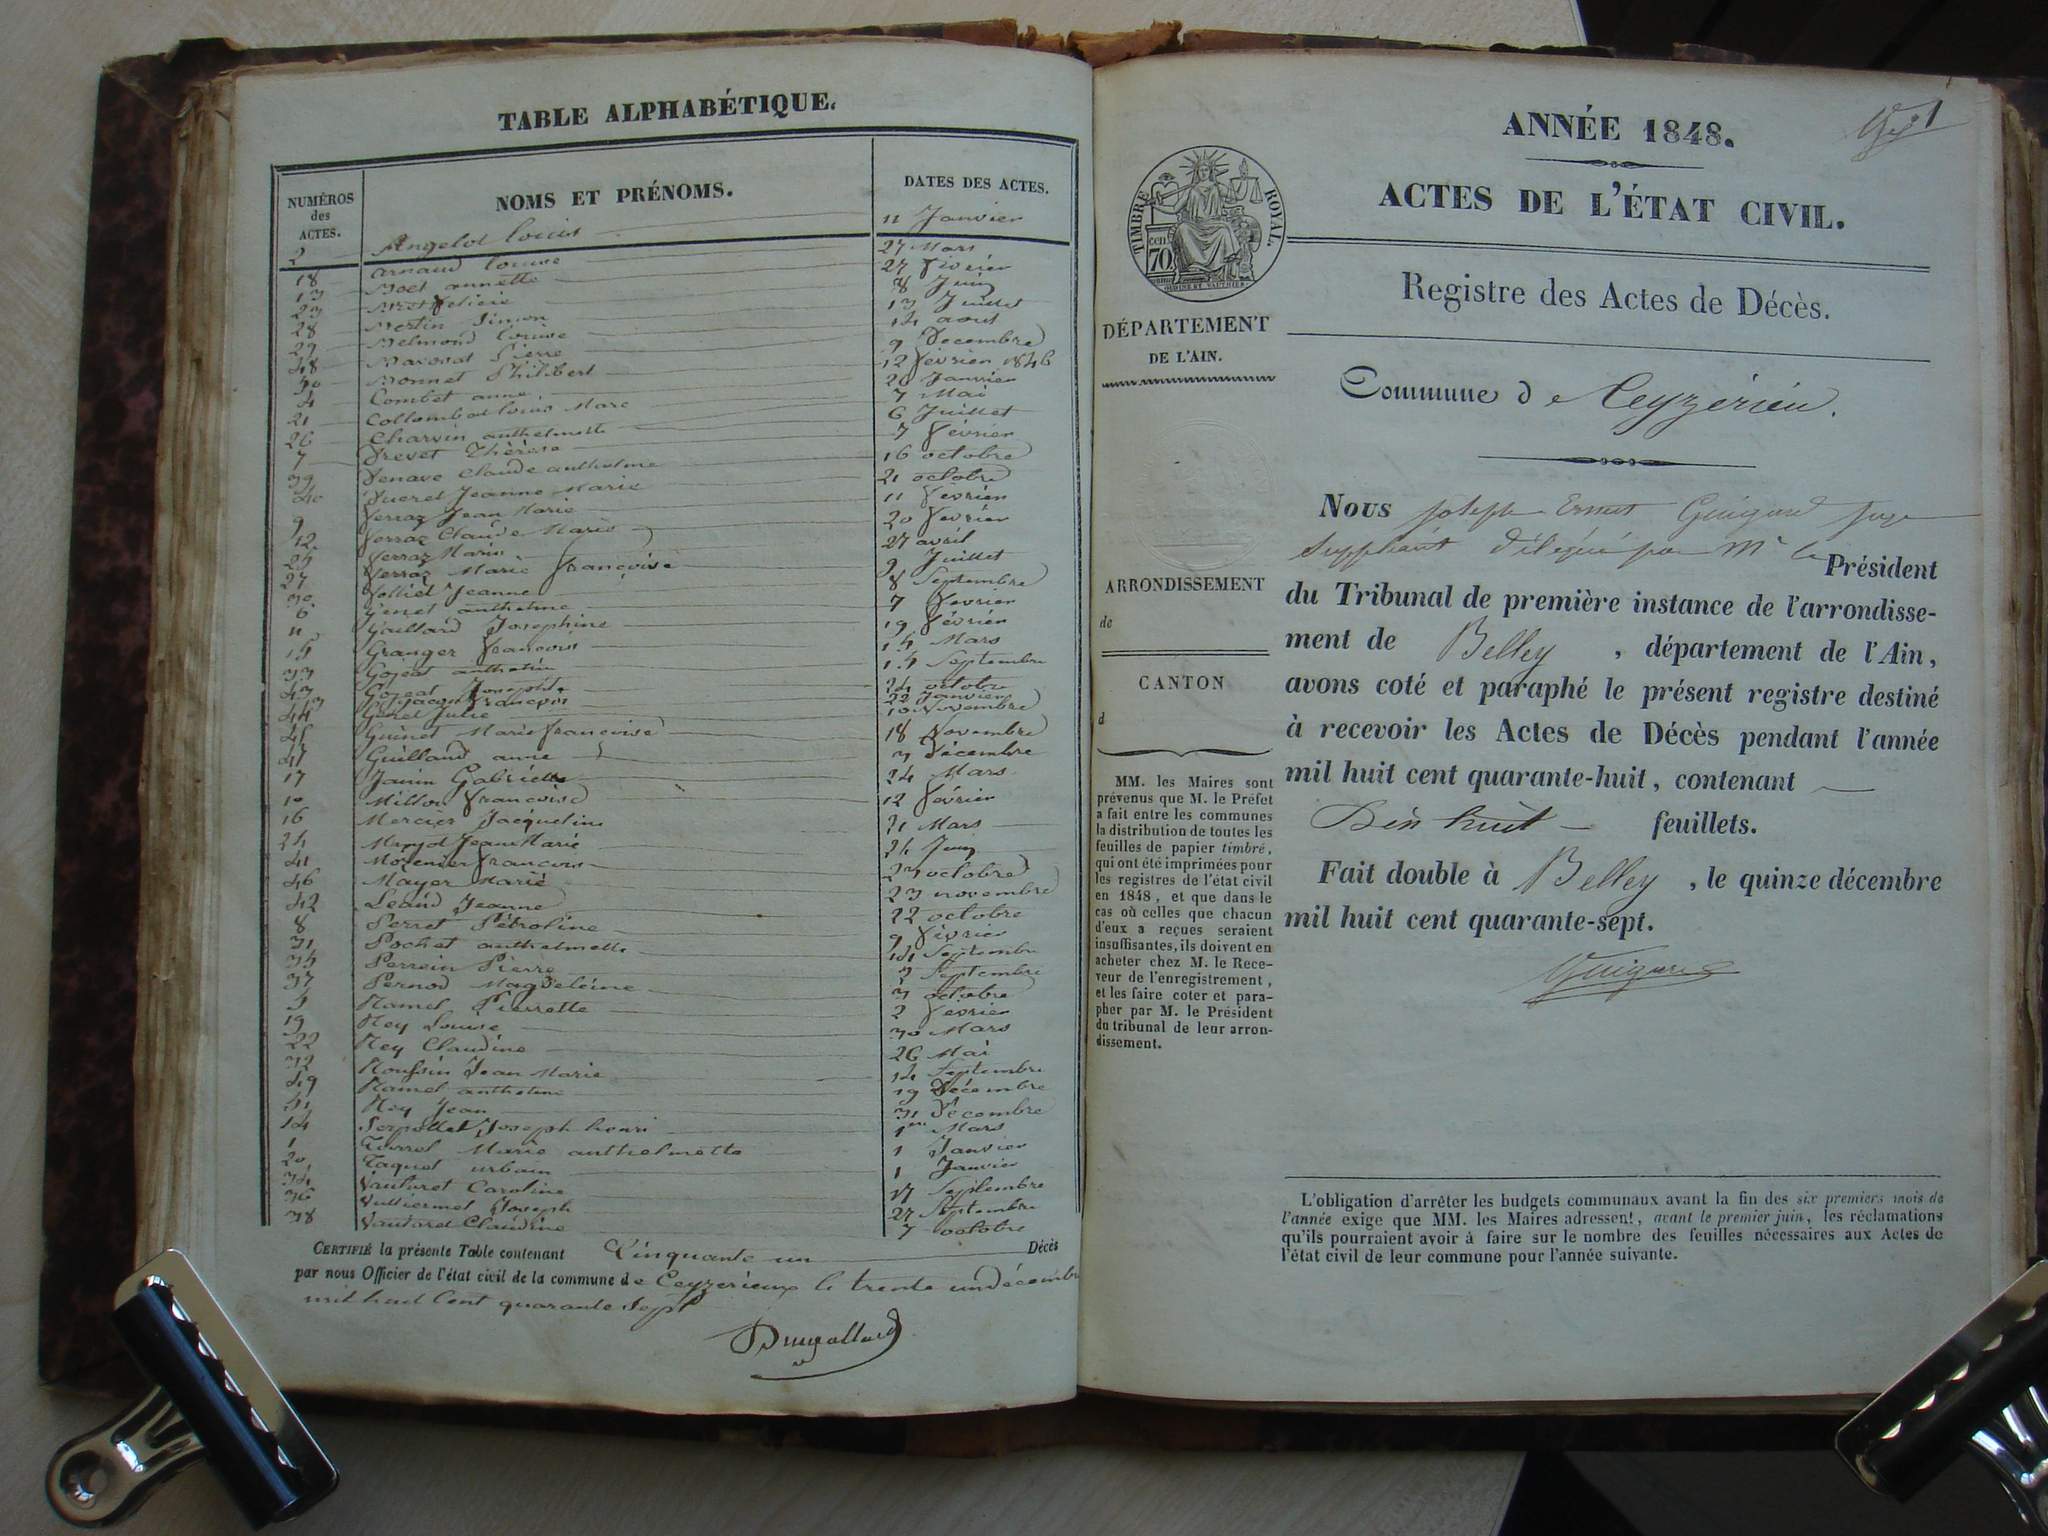 TABLE ALPHABÉTIQUE.
NUMÉROS des ACTES. NOMS ET PRÉNOMS. DATES DES ACTES.
2 Angelot Louis 11 Janvier
18 Arnaud Louise 27 Mars
13 annette 27 février
23 8 Juin
28 Simon 13 Juillet
29 Louise 14 aout
48 Pierre 9 Decembre
50 Monnet Philibert 12 fevrier 1846
4 Combet anne 20 Janvier
21 Collombet Louis Marc 7 Mai
26 Charvin anthelmette 6 Juillet
7 Thérèse 7 février
39 Claude anthelme 16 octobre
40 Jeanne Marie 21 octobre
9 ferraz Jean Marie 11 fevrier
12 ferraz Claude Marie 20 fevrier
25 ferraz Marie 27 avril
27 ferraz Marie françoise 9 Juillet
30 Jeanne 8 Septembre
6 Genet anthelme 7 fevrier
11 Gaillard Josephine 19 février
15 Granger francois 15 Mars
33 Gojeat anthelme 15 Septembre
43 Gojeat Joseph 24 octobre
3 francois 22 Janvier
44 Julie 10 Novembre
45 Guinet Marie françoise 18 Novembre
47 Guilland anne 3 Décembre
17 Janin Gabrielle 24 Mars
10 Millon francoise 12 février
16 Mercier Jacqueline 21 Mars
24 Jean Marie 24 Juin
41 francois 23 octobre
46 Mayer Marie 23 novembre
42 Jeanne 22 octobre
8 Perret Pétroline 9 février
31 Pochet anthelmette Septembre
35 Perrein Pierre Septembre
37 Pernod Magdeleine 3 octobre
5 Ramel Pierrette 2 fevrier
19 Rey Louise 30 Mars
22 Rey Claudine 26 Mai
32 Jean Marie 14 Septembre
49 Ramel anthelme 19 Décembre
51 Rey Jean 31 Décembre
14 Serpollet Joseph henri 1er Mars
1 Marie anthelmette 1 Janvier
20 Taquet urbain 1 Janvier
34 Vautaret Caroline 17 Septembre
36 Vulliermet Joseph 27 Septembre
38 Vautaret Claudine 7 octobre
CERTIFIÉ la présente Table contenant Cinquante un Décès
par nous Officier de l'état civil de la commune de Ceyzerieux le trente un décembre
mil huit Cent quarante Sept
ANNÉE 1848.
1
ACTES DE L'ÉTAT CIVIL.
TIMBRE ROYAL.
cen 70
Registre des Actes de Décès.
DÉPARTEMENT
DE L'AIN.
Commune de Ceyzérieu.
Nous Joseph Ernest Guigard Juge
Suppléant délégué par Mr le Président
du Tribunal de première instance de l'arrondisse-
ment de Belley, département de l'Ain,
avons coté et paraphé le présent registre destiné
à recevoir les Actes de Décès pendant l'année
mil huit cent quarante-huit, contenant
Dix huit feuillets.
Fait double à Belley, le quinze décembre
mil huit cent quarante-sept.
Guigard
ARRONDISSEMENT
de
CANTON
d
MM. les Maires sont
prévenus que M. le Préfet
a fait entre les communes
la distribution de toutes les
feuilles de papier timbré,
qui ont été imprimées pour
les registres de l'état civil
en 1848, et que dans le
cas où celles que chacun
d'eux a reçues seraient
insuffisantes, ils doivent en
acheter chez M. le Rece-
veur de l'enregistrement,
et les faire coter et para-
pher par M. le Président
du tribunal de leur arron-
dissement.
L'obligation d'arrêter les budgets communaux avant la fin des six premiers mois de
l'année exige que MM. les Maires adressent, avant le premier juin, les réclamations
qu'ils pourraient avoir à faire sur le nombre des feuilles nécessaires aux Actes de
l'état civil de leur commune pour l'année suivante.